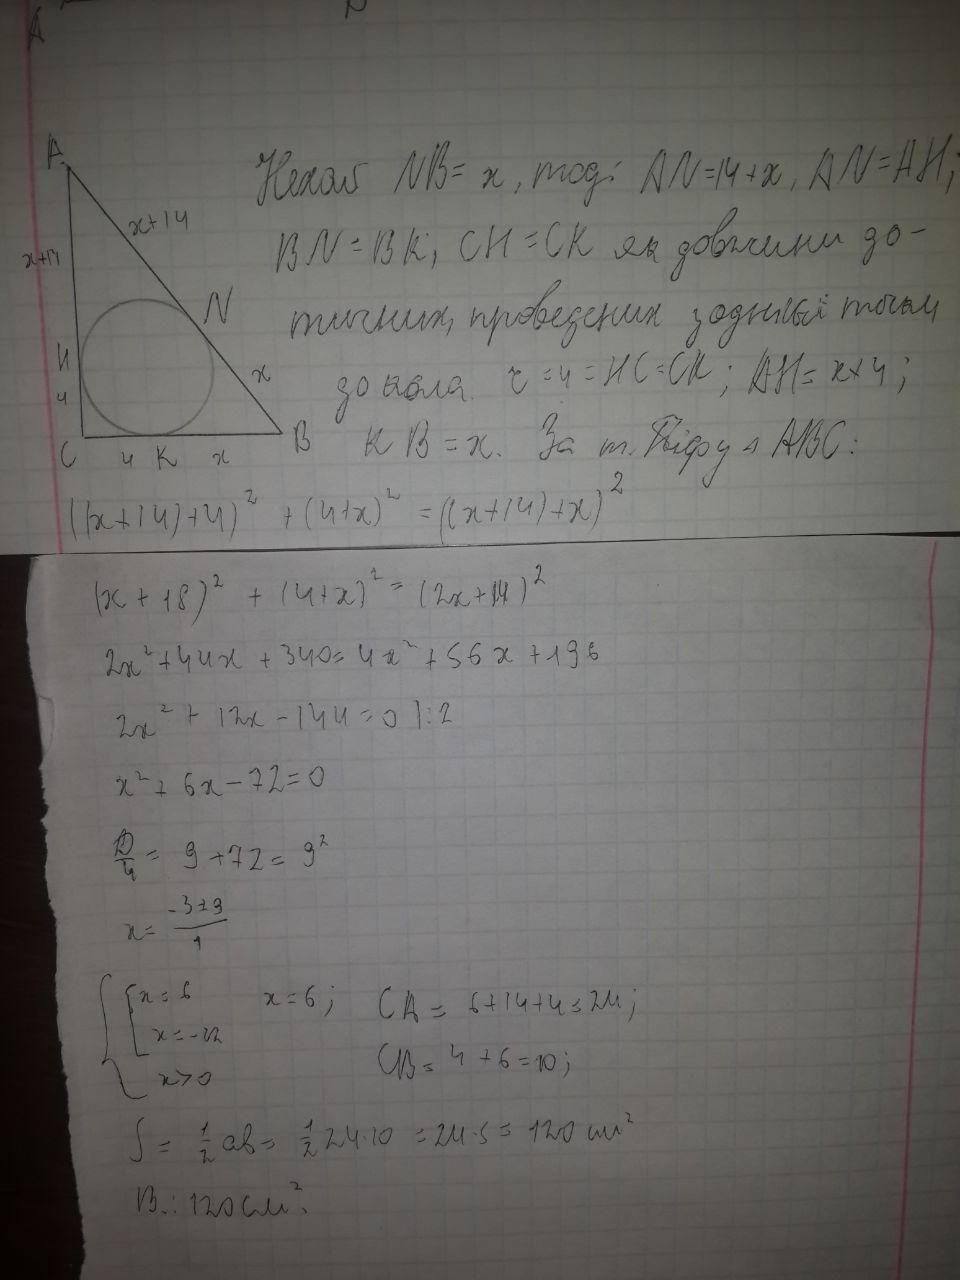 A
A
Нехай NB = x, тоді AN=14+x, AN=AH;
x+14
x+14
BN = BK, CH = CK як довжини до-
N
тичних, проведених з однієї точки
H
x
до кола. r = 4 = HC=CK; AH= x+4;
4
B
KB = x. За т. Піфу Δ ABC:
C 4 K x
((x+14)+4)² + (4+x)² = ((x+14)+x)²
(x + 18)² + (4+x)² = (2x+14)²
2x²+44x + 340 = 4x² + 56x + 196
2x² + 12x - 144 = 0 |:2
x² + 6x - 72 = 0
D/4 = 9 + 72 = 9²
x = -3±9/1
x = 6 x = 6; CA = 6+14+4 = 24;
x = -12
CB = 4 + 6 = 10;
x > 0
S = 1/2 ab = 1/2 24·10 = 24·5 = 120 см²
В.: 120 см².